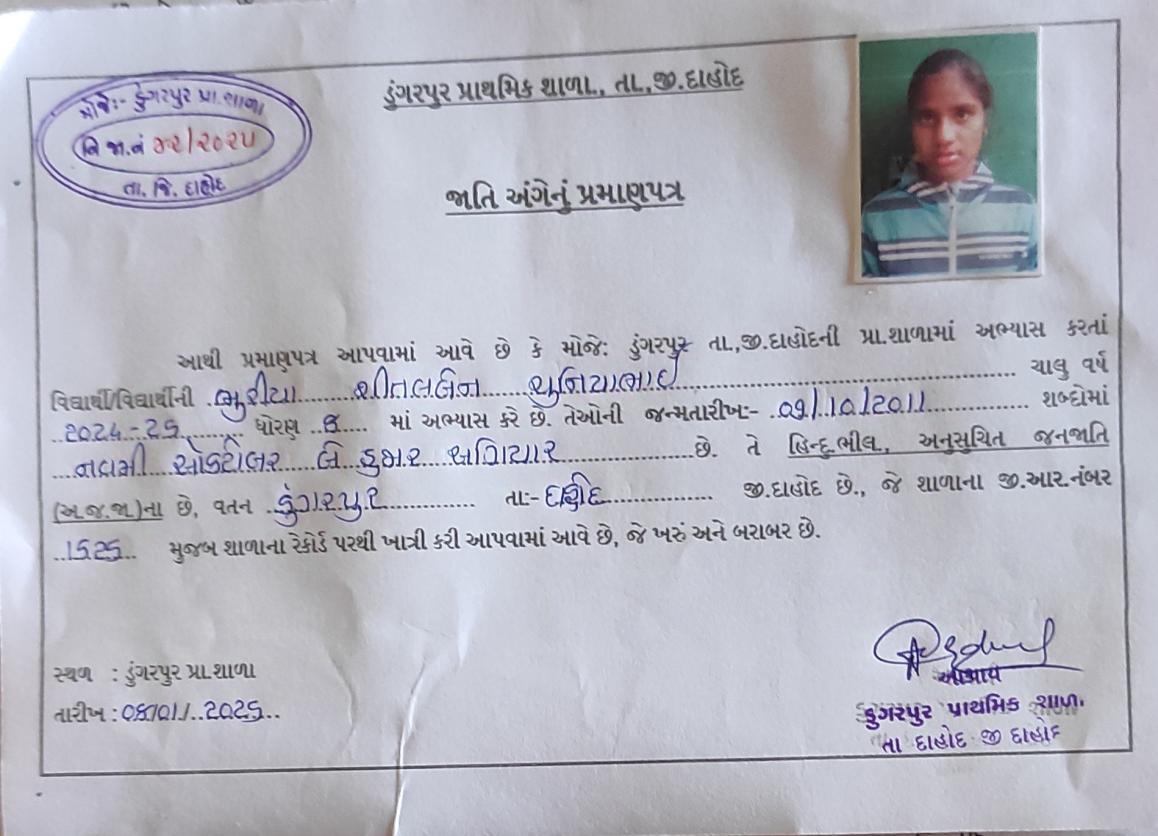 મોજે:- ડુંગરપુર પ્રા.શાળા
વિ જા.નં ૪૨/૨૦૨૫
તા. જિ. દાહોદ
ડુંગરપુર પ્રાથમિક શાળા., તા.,જી.દાહોદ
જાતિ અંગેનું પ્રમાણપત્ર
આથી પ્રમાણપત્ર આપવામાં આવે છે કે મોજે: ડુંગરપુર તા.,જી.દાહોદની પ્રા.શાળામાં અભ્યાસ કરતાં
વિદ્યાર્થી/વિદ્યાર્થીની ભુરીયા શીતલબેન ચુનિયાભાઈ ચાલુ વર્ષ
2024-25 ધોરણ 8 માં અભ્યાસ કરે છે. તેઓની જન્મતારીખઃ- 09/10/2011 શબ્દોમાં
નવમી ઓકટોબર બે હજાર અગિયાર છે. તે હિન્દુ ભીલ, અનુસુચિત જનજાતિ
(અ.જ.જા)ના છે, વતન ડુંગરપુર તા:- દાહોદ જી.દાહોદ છે., જે શાળાના જી.આર.નંબર
1525 મુજબ શાળાના રેકોર્ડ પરથી ખાત્રી કરી આપવામાં આવે છે, જે ખરું અને બરાબર છે.
સ્થળ : ડુંગરપુર પ્રા.શાળા
તારીખ : 08/01/2025
આચાર્ય
ડુંગરપુર પ્રાથમિક શાળા
તા દાહોદ જી દાહોદ